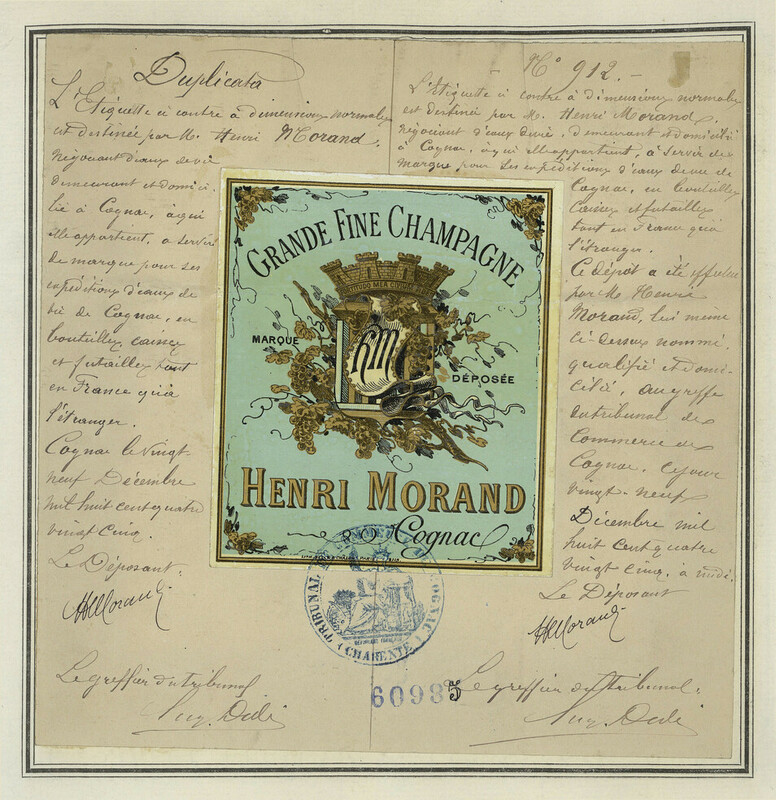 Duplicata
L'Etiquette ci contre à dimensions normales
est destinée par M. Henri Morand,
négociant d'eaux de vie
demeurant et domici-
lié à Cognac, à qui
elle appartient, à servir
de marque pour ses
expéditions d'eaux de
vie de Cognac, en
bouteilles, caisses
et futailles tant
en France qu'à
l'étranger.
Cognac le vingt
neuf Décembre
mil huit cent quatre
vingt cinq.
Le Déposant.
HMorand
Le greffier du tribunal
GRANDE FINE CHAMPAGNE
HM
MARQUE
DÉPOSÉE
HENRI MORAND
Cognac
TRIBUNAL DE COMMERCE COGNAC
CHARENTE
60985
N° 912.-
L'Etiquette ci contre à dimensions normales
est destinée par M. Henri Morand,
négociant d'eaux de vie, demeurant et domicilié
à Cognac, à qui elle appartient, à servir de
marque pour ses expéditions d'eaux de vie de
Cognac, en bouteilles
caisses et futailles
tant en France qu'à
l'étranger.
Ce dépôt a été effectué
par M. Henri
Morand, lui même
ci-dessus nommé,
qualifié et domi-
cilié, au greffe
du tribunal de
Commerce de
Cognac, ce jour
vingt-neuf
Décembre mil
huit cent quatre
vingt cinq, à midi.
Le Déposant
HMorand
Le greffier du tribunal.